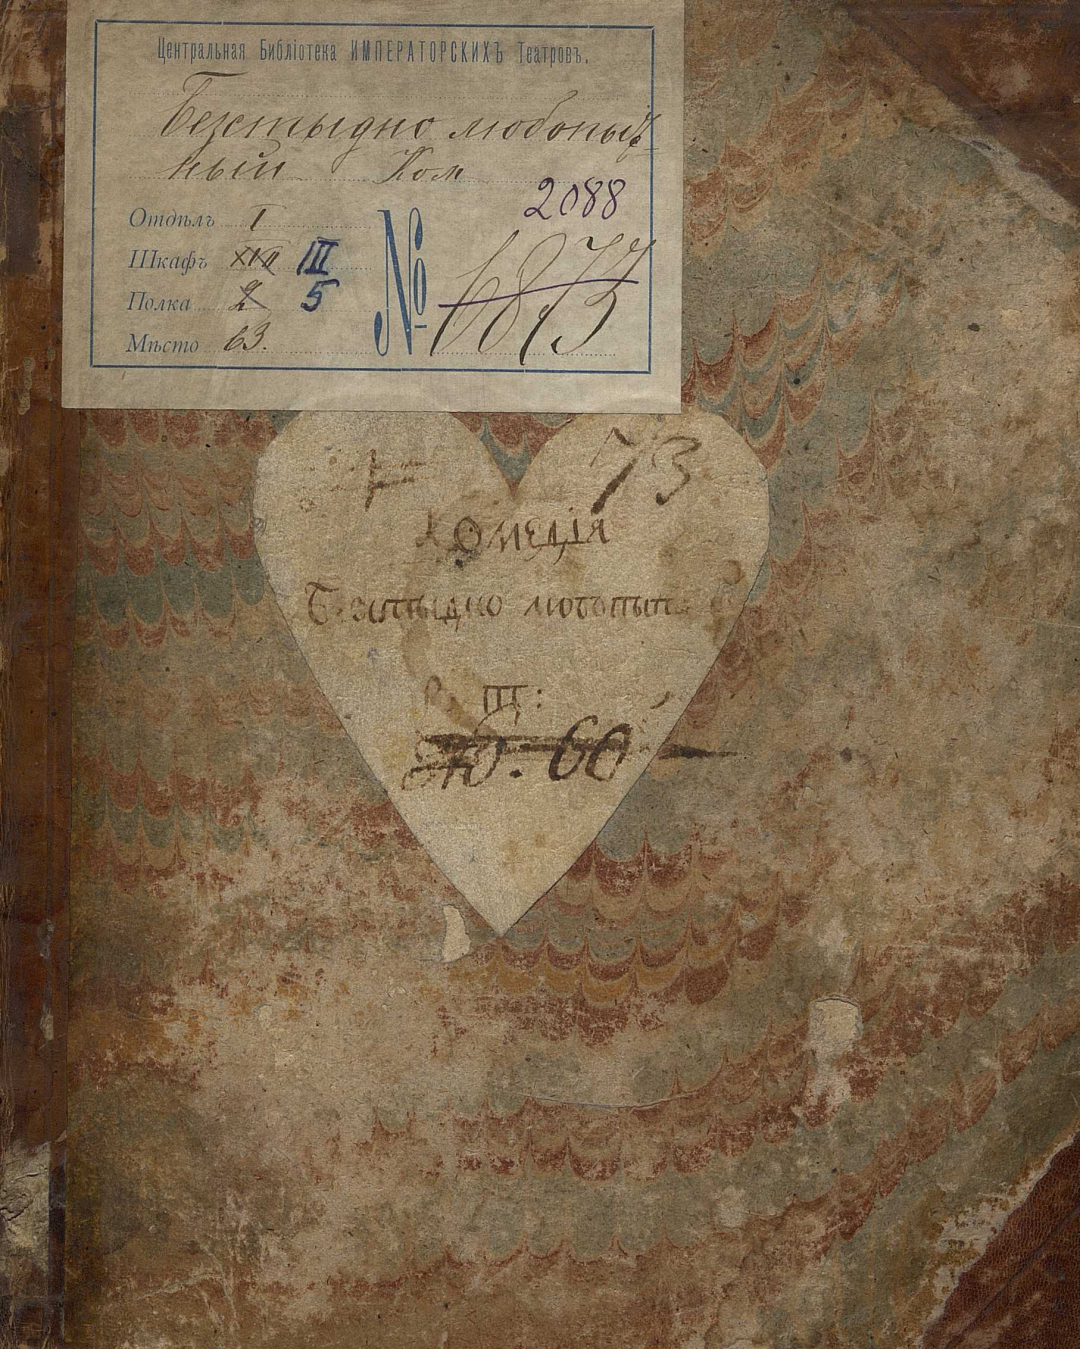 Центральная Библіотека ИМПЕРАТОРСКИХЪ Театровъ.
Безстыдно любопыт-
ный Ком
2088
Отдѣлъ I
Шкафъ XIV III
Полка 2 5
Мѣсто 63.
№ 6873
73
Комедія
Безстыдно любопыт
Щ:
60